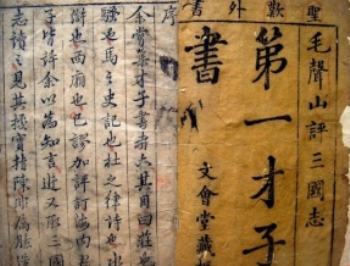 聖歎外書
毛聲山評三國志
第一才子
書
文會堂藏
序
余嘗集才子書者六其目曰莊也
騷也馬之史記也杜之律詩也水
滸也西廂也已謬加評訂海內君
子皆許余以為知言近又取三國
志讀之見其據實指陳非屬臆造